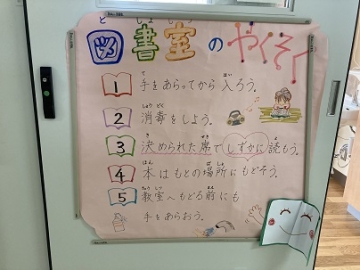 図書室のやくそく
1 手をあらってから入ろう。
2 消毒をしよう。
3 決められた席でしずかに読もう。
4 本はもとの場所にもどそう。
5 教室へもどる前にも
手をあらおう。